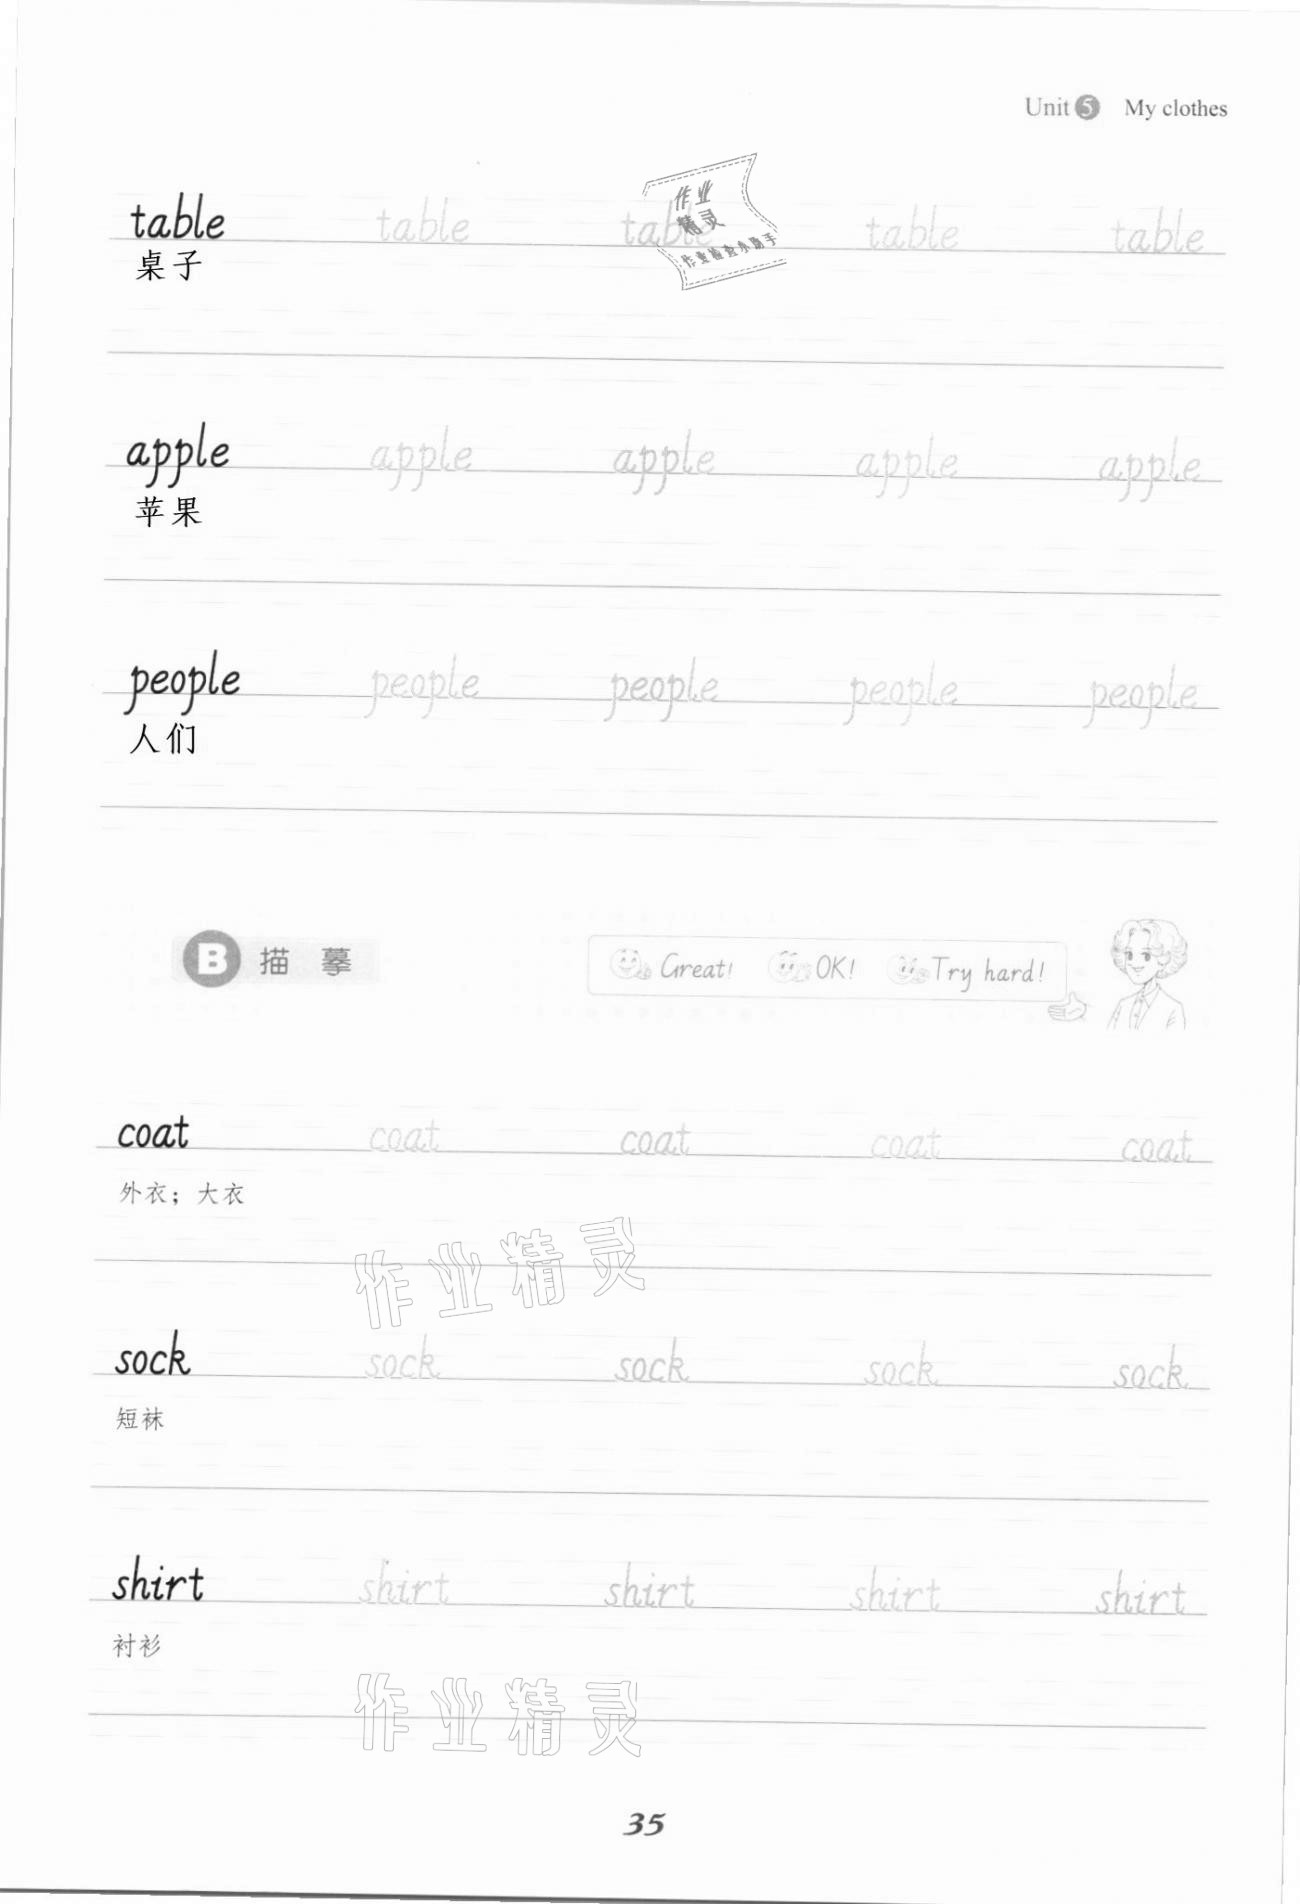 Unit 5 My clothes
table table table table table
桌子
作业
精灵
作业检查小助手
apple apple apple apple apple
苹果
people people people people people
人们
B 描 摹
Great! OK! Try hard!
coat coat coat coat coat
外衣；大衣
作业精灵
sock sock sock sock sock
短袜
shirt shirt shirt shirt shirt
衬衫
作业精灵
35